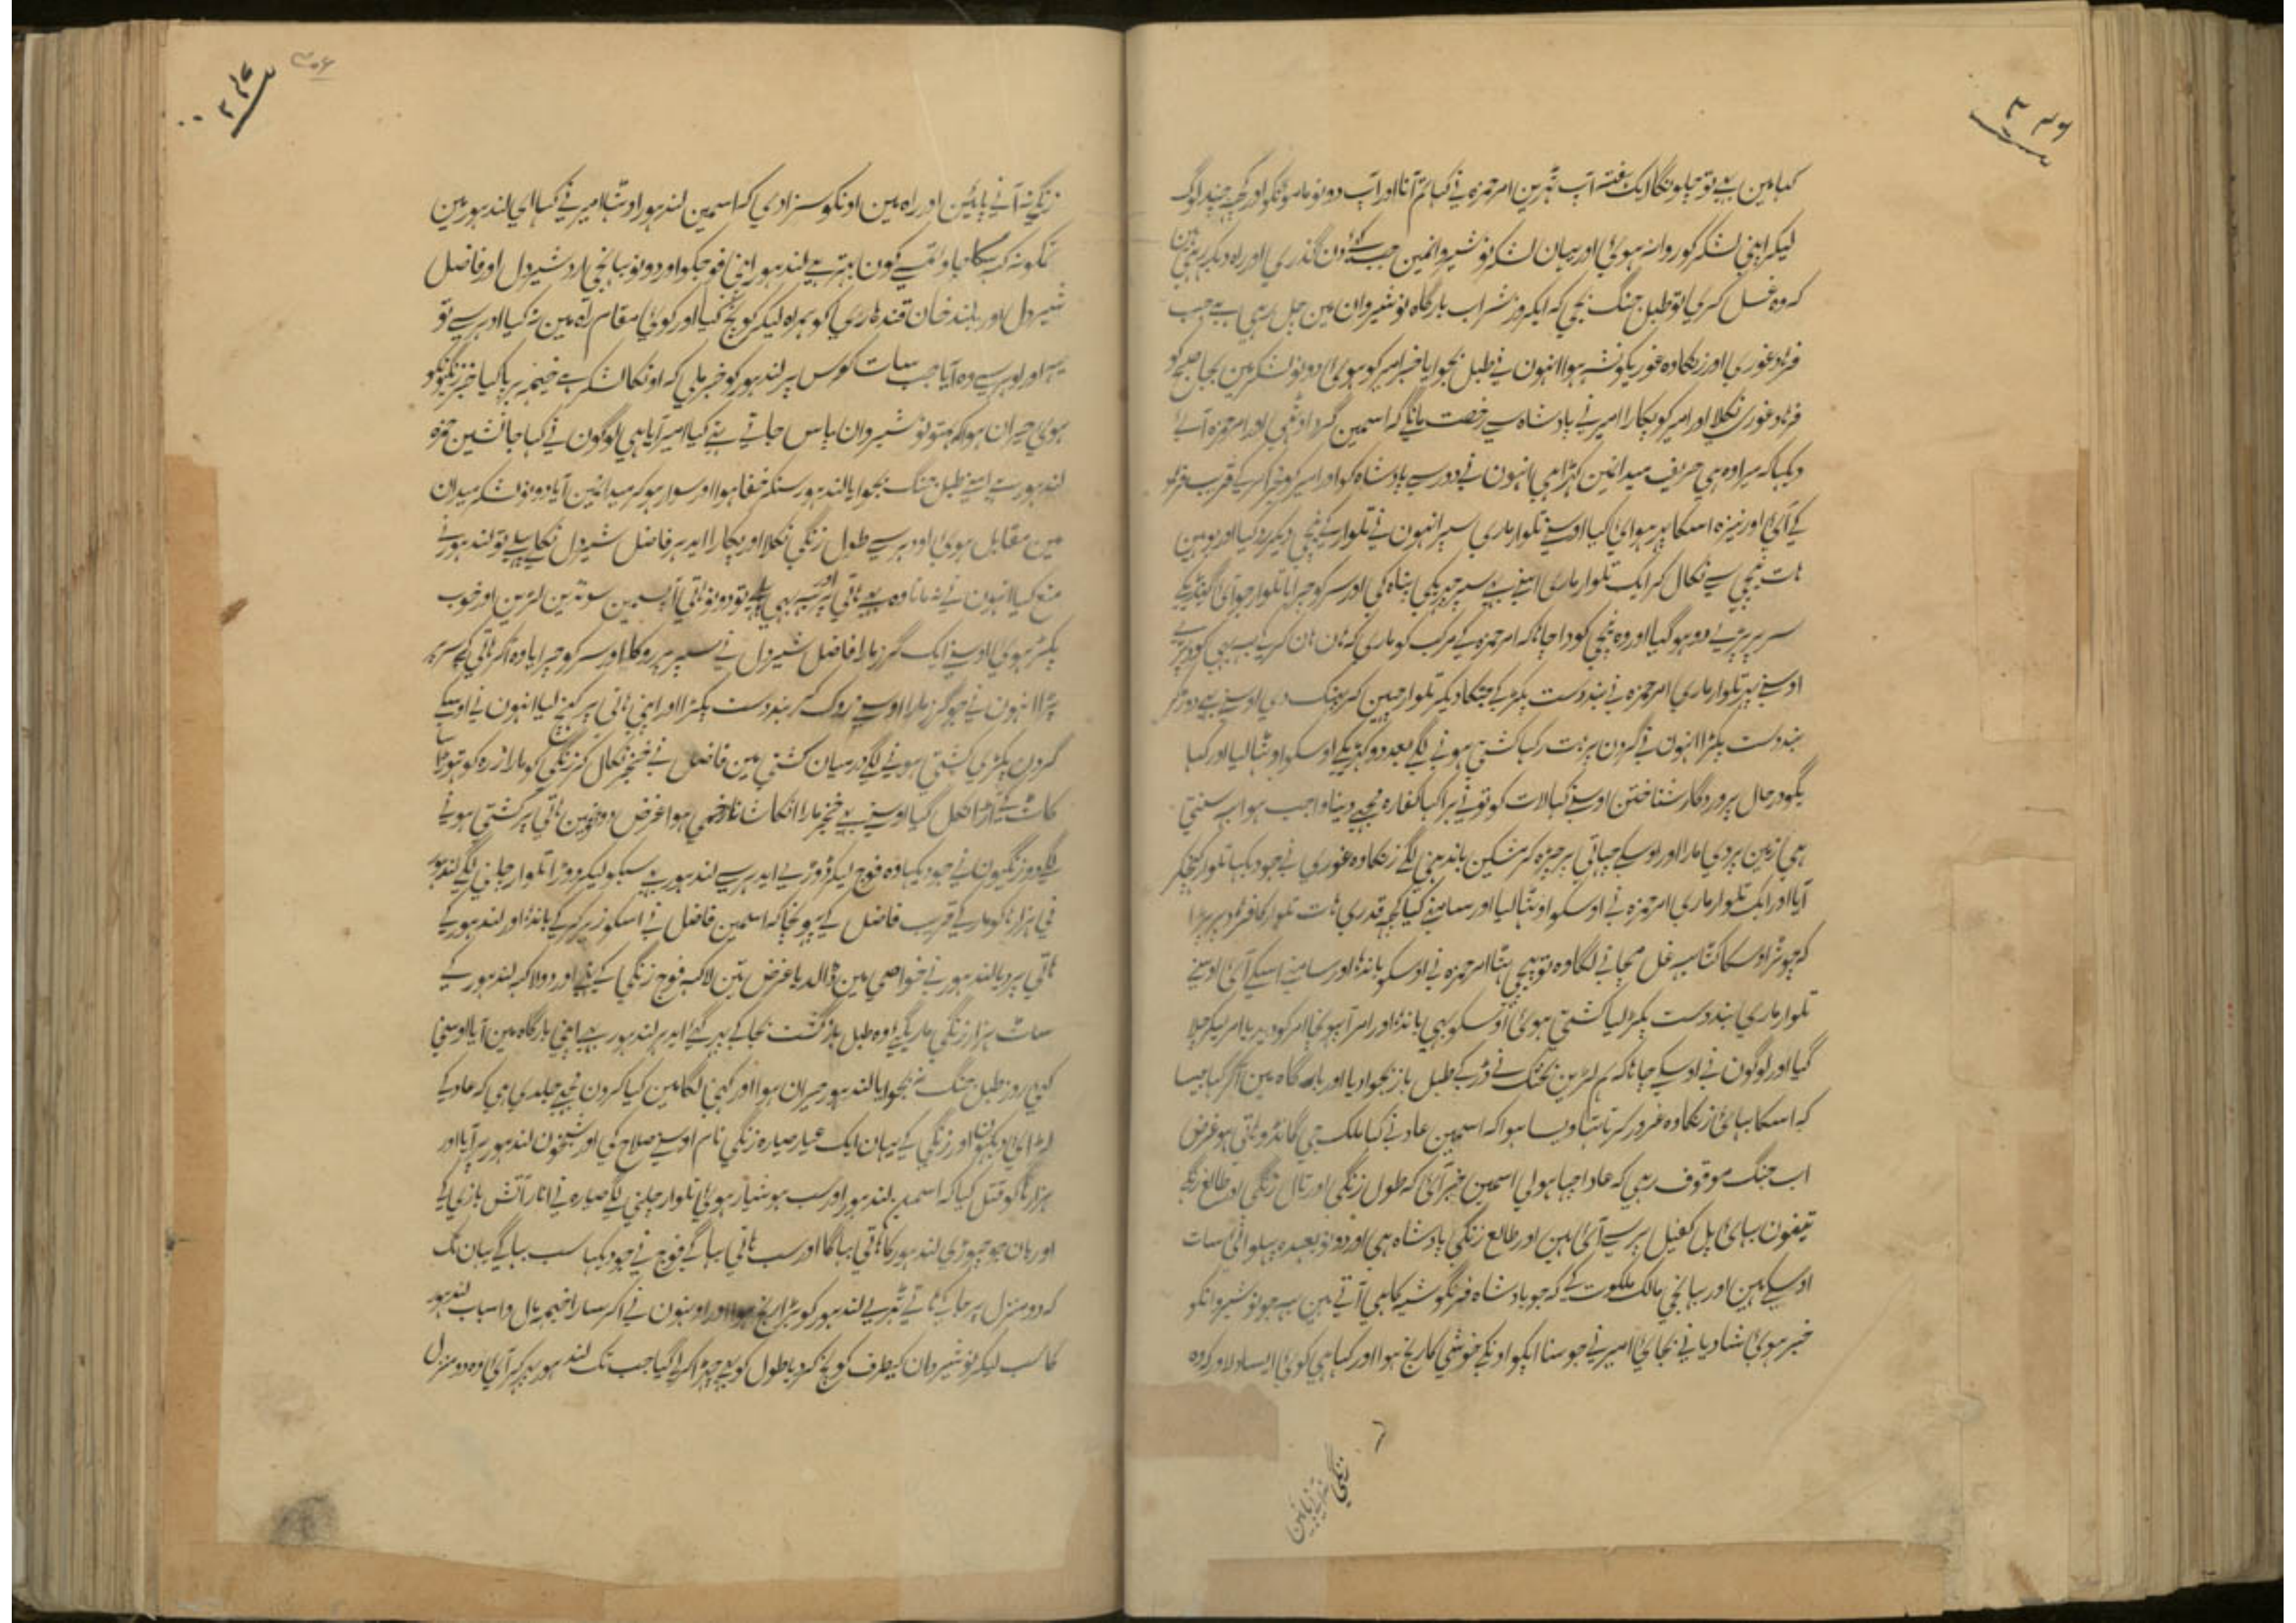 کہا مین بہی تو چلونگا ایک ہفتہ آپ ٹہرین امیر حمزہ نی کہا تم آنا اور آپ دونو مامونکو اور کچہہ چند لوگ
لیکر اپنی لشکر کو روانہ ہوئی اور یہان لشکر نوشیروانمین جب کئی دن گذری اور راہ دیکہ رہی ہین
کہ وہ غسل کری تو طبل جنگ بجی کہ ایکروز شراب بارگاہ نوشیروان مین چل رہی ہے جب
فرہاد غوری اور زنکاوہ غوریکو نشہ ہوا انہون نی طبل بجوایا خبر امیر کو ہوئی دونو لشکر مین بجا صبح کو
فرہاد غوری نکلا اور امیر کو پکارا امیر نی بادشاہ سے رخصت مانگا کہ اسمین گرد اوٹہی اور امیر حمزہ آئے
دیکہا کہ میرا وہ ہی حریف میدانمین کہڑا ہی انہون نی دور سے بادشاہ کو اور امیر کو مجرا کر کے قریب فرہاد
کے آئی اور نیزہ اسکا پر ہوائی کیا اوسنے تلوار ماری سپر انہون نی تلوار کے نیچی دیکر رد کیا اور یوہین
ہات نیچی سے نکال کر ایک تلوار ماری اسنے بہی سپر چہریکی پناہ کی اور سر کو چرایا تلوار جو آئی گینڈیکے
سر پر پڑی دو ہو گیا اور وہ نیچی کودا چاہا کہ امیر حمزہ کے مرکب کو ماری کہ ہان ہان کر کے یہ بہی کود پڑی
اوسنے پہر تلوار ماری امیر حمزہ نی بند دست پکڑ کے جہٹکا دیکر تلوار چہین کر پہینک دی اوسنے بہی دوڑ کر
بند دست پکڑا انہون نی گردن پر ہات رکہا کشتی ہونے لگی بعد دو گہڑیکے اوسکو اوٹہا لیا اور کہا
بگو در حال پروردگار شناختن اوسنے کہا لات کو تونی برا کہا کفارہ مجہے دینا واجب ہوا یہ سنتی
ہی زمین پر دی مارا اور اوسکے چہاتی پر چڑہ کر مشکین باندہنی لگے زنکاوہ غوری نے جو دیکہا تلوار کہینچکر
آیا اور ایک تلوار ماری امیر حمزہ نی اوسکو اوٹہا لیا اور سامنے کیا کچہہ قدری ہات تلوار کا فرہاد پر پڑا
کہ چوتڑ اوسکا کٹا یہ غل مچانے لگا وہ تو پیچہی ہٹا امیر حمزہ نی اوسکو باندہا اور سامنے اسکے آئی اوسنے
تلوار ماری بند دست پکڑ لیا کشتی ہوئی اوسکو بہی باندہا اور امیر آ پہونچا امیر کو دیدیا امیر لیکر چلا
گیا اور لوگون نی اوسکے چاہا کہ ہم لڑین بختک نے ڈر کے طبل باز بجوا دیا اور بارگاہ مین آ کر کہا جیسا
کہ اسکا بہائی زنکاوہ غرور کرتا تہا ویسا ہوا کہ اسمین عاد نے کہا ملک جی گانڈو ہاتی ہو غرض
اب جنگ موقوف رہی کہ عاد اچہا ہو لی اسمین خبر آئی کہ طول زنگی اور تال زنگی اور طالع زنگی
تینون بہائی پل کفیل پر سے آئی ہین اور طالع زنگی بادشاہ ہی اور دونو بعہدہ پہلوانی سات
اوسکے ہین اور بہانجی مالک ملکوت کے کہ جو بادشاہ فرنگوشیہ کا ہی آتے ہین یہ جو نوشیروانکو
خبر ہوئی شادیانے بجائی امیر نے جو سنا ایکو اونکے خوشی کا رنج ہوا اور کہا ہی کوئی ایسا دلاور کہ وہ
زنگی نہ آنے پائین
زنگی نہ آنی پائین اور راہ مین اونکو سزا دی کہ اسمین لندہور اوٹہا امیر نی کہا ای لندہور مین
تمکو نہ کہہ سکا تہا و تمسے کون بہتر ہی لندہور اپنی فوجکو اور دونو بہانجی ارد شیردل اور فاضل
شیردل اور بلند خان قندہاری کو ہمراہ لیکر کوچ کیا اور کوئی مقام راہ مین نہ کیا ادہر سے تو
یہ اور اودہر سے وہ آیا جب سات کوس پر لندہور کو خبر ملی کہ اونکا لشکر ہے خیمہ برپا کیا خبر زنگیونکو
ہوئی حیران ہوا کہ ہم تو نوشیروان پاس جاتے تہے کیا امیر آیا ہی لوگون نی کہا جانشین حمزہ
لندہور ہے اسنے طبل جنگ بجوایا لندہور سنکر خفا ہوا اور سوار ہو کر میدانمین آیا دونو لشکر میدان
مین مقابل ہوئی اودہر سے طول زنگی نکلا اور پکارا ایدہر فاضل شیردل نکلے پہلے تو لندہور نے
منع کیا انہون نی نہ مانا وہ بہی ہاتی پر اور یہ بہی ہاتی پر تہے تو دونو ہاتی آپسمین سونڈین لڑین اور خوب
ٹکر ہوئی اوسنے ایک گرز مارا فاضل شیردل نے سپر پر روکا اور سر کو چرایا وہ اکر ہاتی کے سر پر
پڑا انہون نی جو گرز مارا اوسنے روک کر بند دست پکڑا اور اپنی ہاتی پر کہینچ لیا انہون نی اوسکے
گردن پکڑی کشتی ہونے لگی درمیان کشتی مین فاضل نے خنجر نکال کر زنگی کو مارا زرہ کو تہوڑا سا
کاٹ کے اڑا کہل گیا اوسنے بہی خنجر مارا انکا شانہ زخمی ہوا غرض دونومین ہاتی پر کشتی ہونے
لگی دو زنگیون نے جو دیکہا وہ فوج لیکر دوڑے ایدہر سے لندہور بہی سبکو لیکر دوڑا تلوار چلنی لگی لندہور
نی ہزارہا کو مار کے قریب فاضل کے پہونچا کہ اسمین فاضل نے اسکو زیر کر کے باندہا اور لندہور کے
ہاتی پر دیا لندہور نے خواصی مین ڈالدیا غرض تین لاکہہ فوج زنگی کے تہے اور دو لاکہہ لندہور کے
سات ہزار زنگی ماری گئے وہ طبل بازگشت بجا کے پہر گئے ایدہر لندہور بہی اپنی بارگاہ مین آیا اوسنی
کئی روز طبل جنگ نہ بجوایا لندہور حیران ہوا اور کہنی لگا مین کیا کرون مجہے جلدی ہی کہ عاد کے
لڑائی دیکہون اور زنگی کے یہان ایک عیار صیارہ زنگی نام اوسنے صلاح کی اور شبخون لندہور پر آیا اور
ہزارہا کو قتل کیا کہ اسمین لندہور اور سب ہوشیار ہوئی تلوار چلنی لگی صیارہ نی انار آتش بازی کے
اور بان جو چہوڑی لندہور کا ہاتی بہاگا اور سب ہاتی بہاگے فوج نے جو دیکہا سب بہاگے یہان تک
کہ دو منزل پر جا کے ٹہرے لندہور کو بڑا رنج ہوا اور اونہون نی اکر سارا خیمہ مال و اسباب لندہور
کا سب لیکر نوشیروان کیطرف کوچ کر دیا طول کو بہی چہڑا کر لے گیا جب تک لندہور پہر کر آئی وہ دو منزل